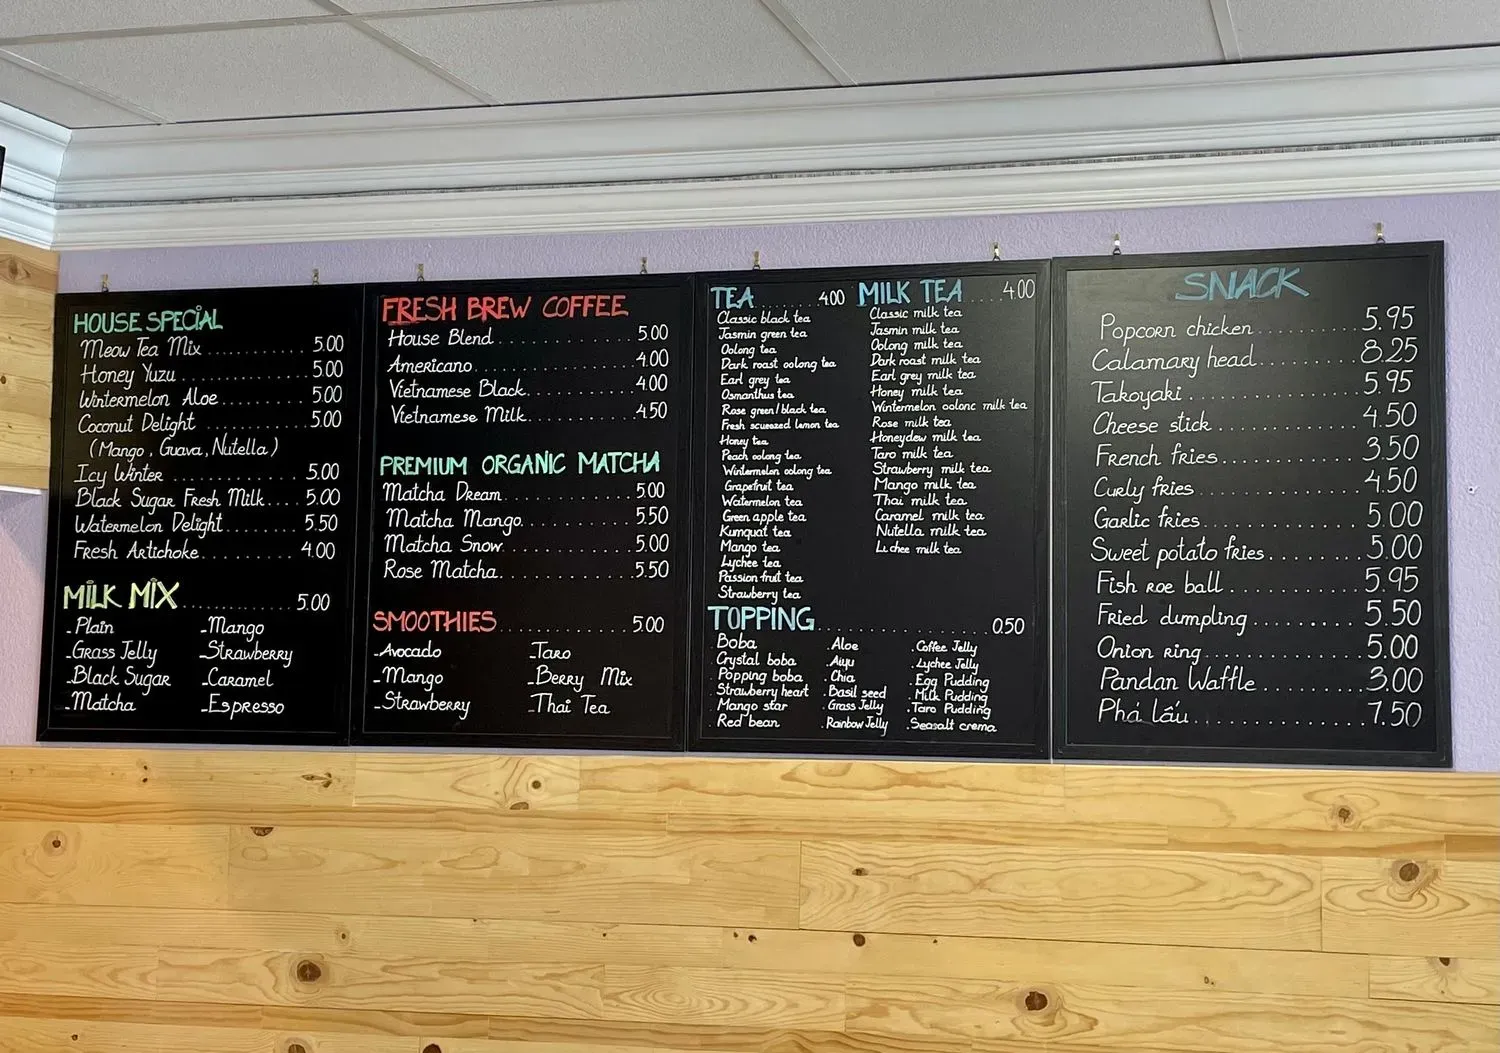 HOUSE SPECIAL
Meow Tea Mix 5.00
Honey Yuzu 5.00
Wintermelon Aloe 5.00
Coconut Delight 5.00
(Mango, Guava, Nutella)
Icy Winter 5.00
Black Sugar Fresh Milk 5.00
Watermelon Delight 5.50
Fresh Artichoke 4.00
MILK MIX 5.00
-Plain
-Grass Jelly
-Black Sugar
-Matcha
-Mango
-Strawberry
-Caramel
-Espresso
FRESH BREW COFFEE
House Blend 5.00
Americano 4.00
Vietnamese Black 4.00
Vietnamese Milk 4.50
PREMIUM ORGANIC MATCHA
Matcha Dream 5.00
Matcha Mango 5.50
Matcha Snow 5.00
Rose Matcha 5.50
SMOOTHIES 5.00
-Avocado
-Mango
-Strawberry
-Taro
-Berry Mix
-Thai Tea
TEA 4.00
Classic black tea
Jasmin green tea
Oolong tea
Dark roast oolong tea
Earl grey tea
Osmanthus tea
Rose green/black tea
Fresh scueezed lemon tea
Honey tea
Peach oolong tea
Wintermelon oolong tea
Grapefruit tea
Watermelon tea
Green apple tea
Kumquat tea
Mango tea
Lychee tea
Passion fruit tea
Strawberry tea
MILK TEA 4.00
Classic milk tea
Jasmin milk tea
Oolong milk tea
Dark roast milk tea
Earl grey milk tea
Honey milk tea
Wintermelon oolonc milk tea
Rose milk tea
Honeydew milk tea
Taro milk tea
Strawberry milk tea
Mango milk tea
Thai milk tea
Caramel milk tea
Nutella milk tea
Lichee milk tea
TOPPING 0.50
Boba
Crystal boba
Popping boba
Strawberry heart
Mango star
Red bean
Aloe
Aiyu
Chia
Basil seed
Grass Jelly
Rainbow Jelly
Coffee Jelly
Lychee Jelly
Egg Pudding
Milk Pudding
Taro Pudding
Seasalt crema
SNACK
Popcorn chicken 5.95
Calamary head 8.25
Takoyaki 5.95
Cheese stick 4.50
French fries 3.50
Curly fries 4.50
Garlic fries 5.00
Sweet potato fries 5.00
Fish roe ball 5.95
Fried dumpling 5.50
Onion ring 5.00
Pandan Waffle 3.00
Phá lấu 7.50